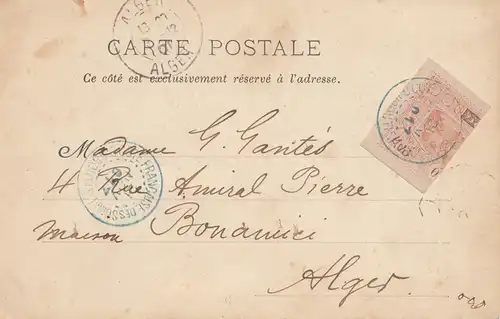 ALGER
CARTE POSTALE
ALGER
Ce côté est exclusivement réservé à l'adresse.
Madame G. Gantés
4 Rue Amiral Pierre
maison Bonamici
Alger